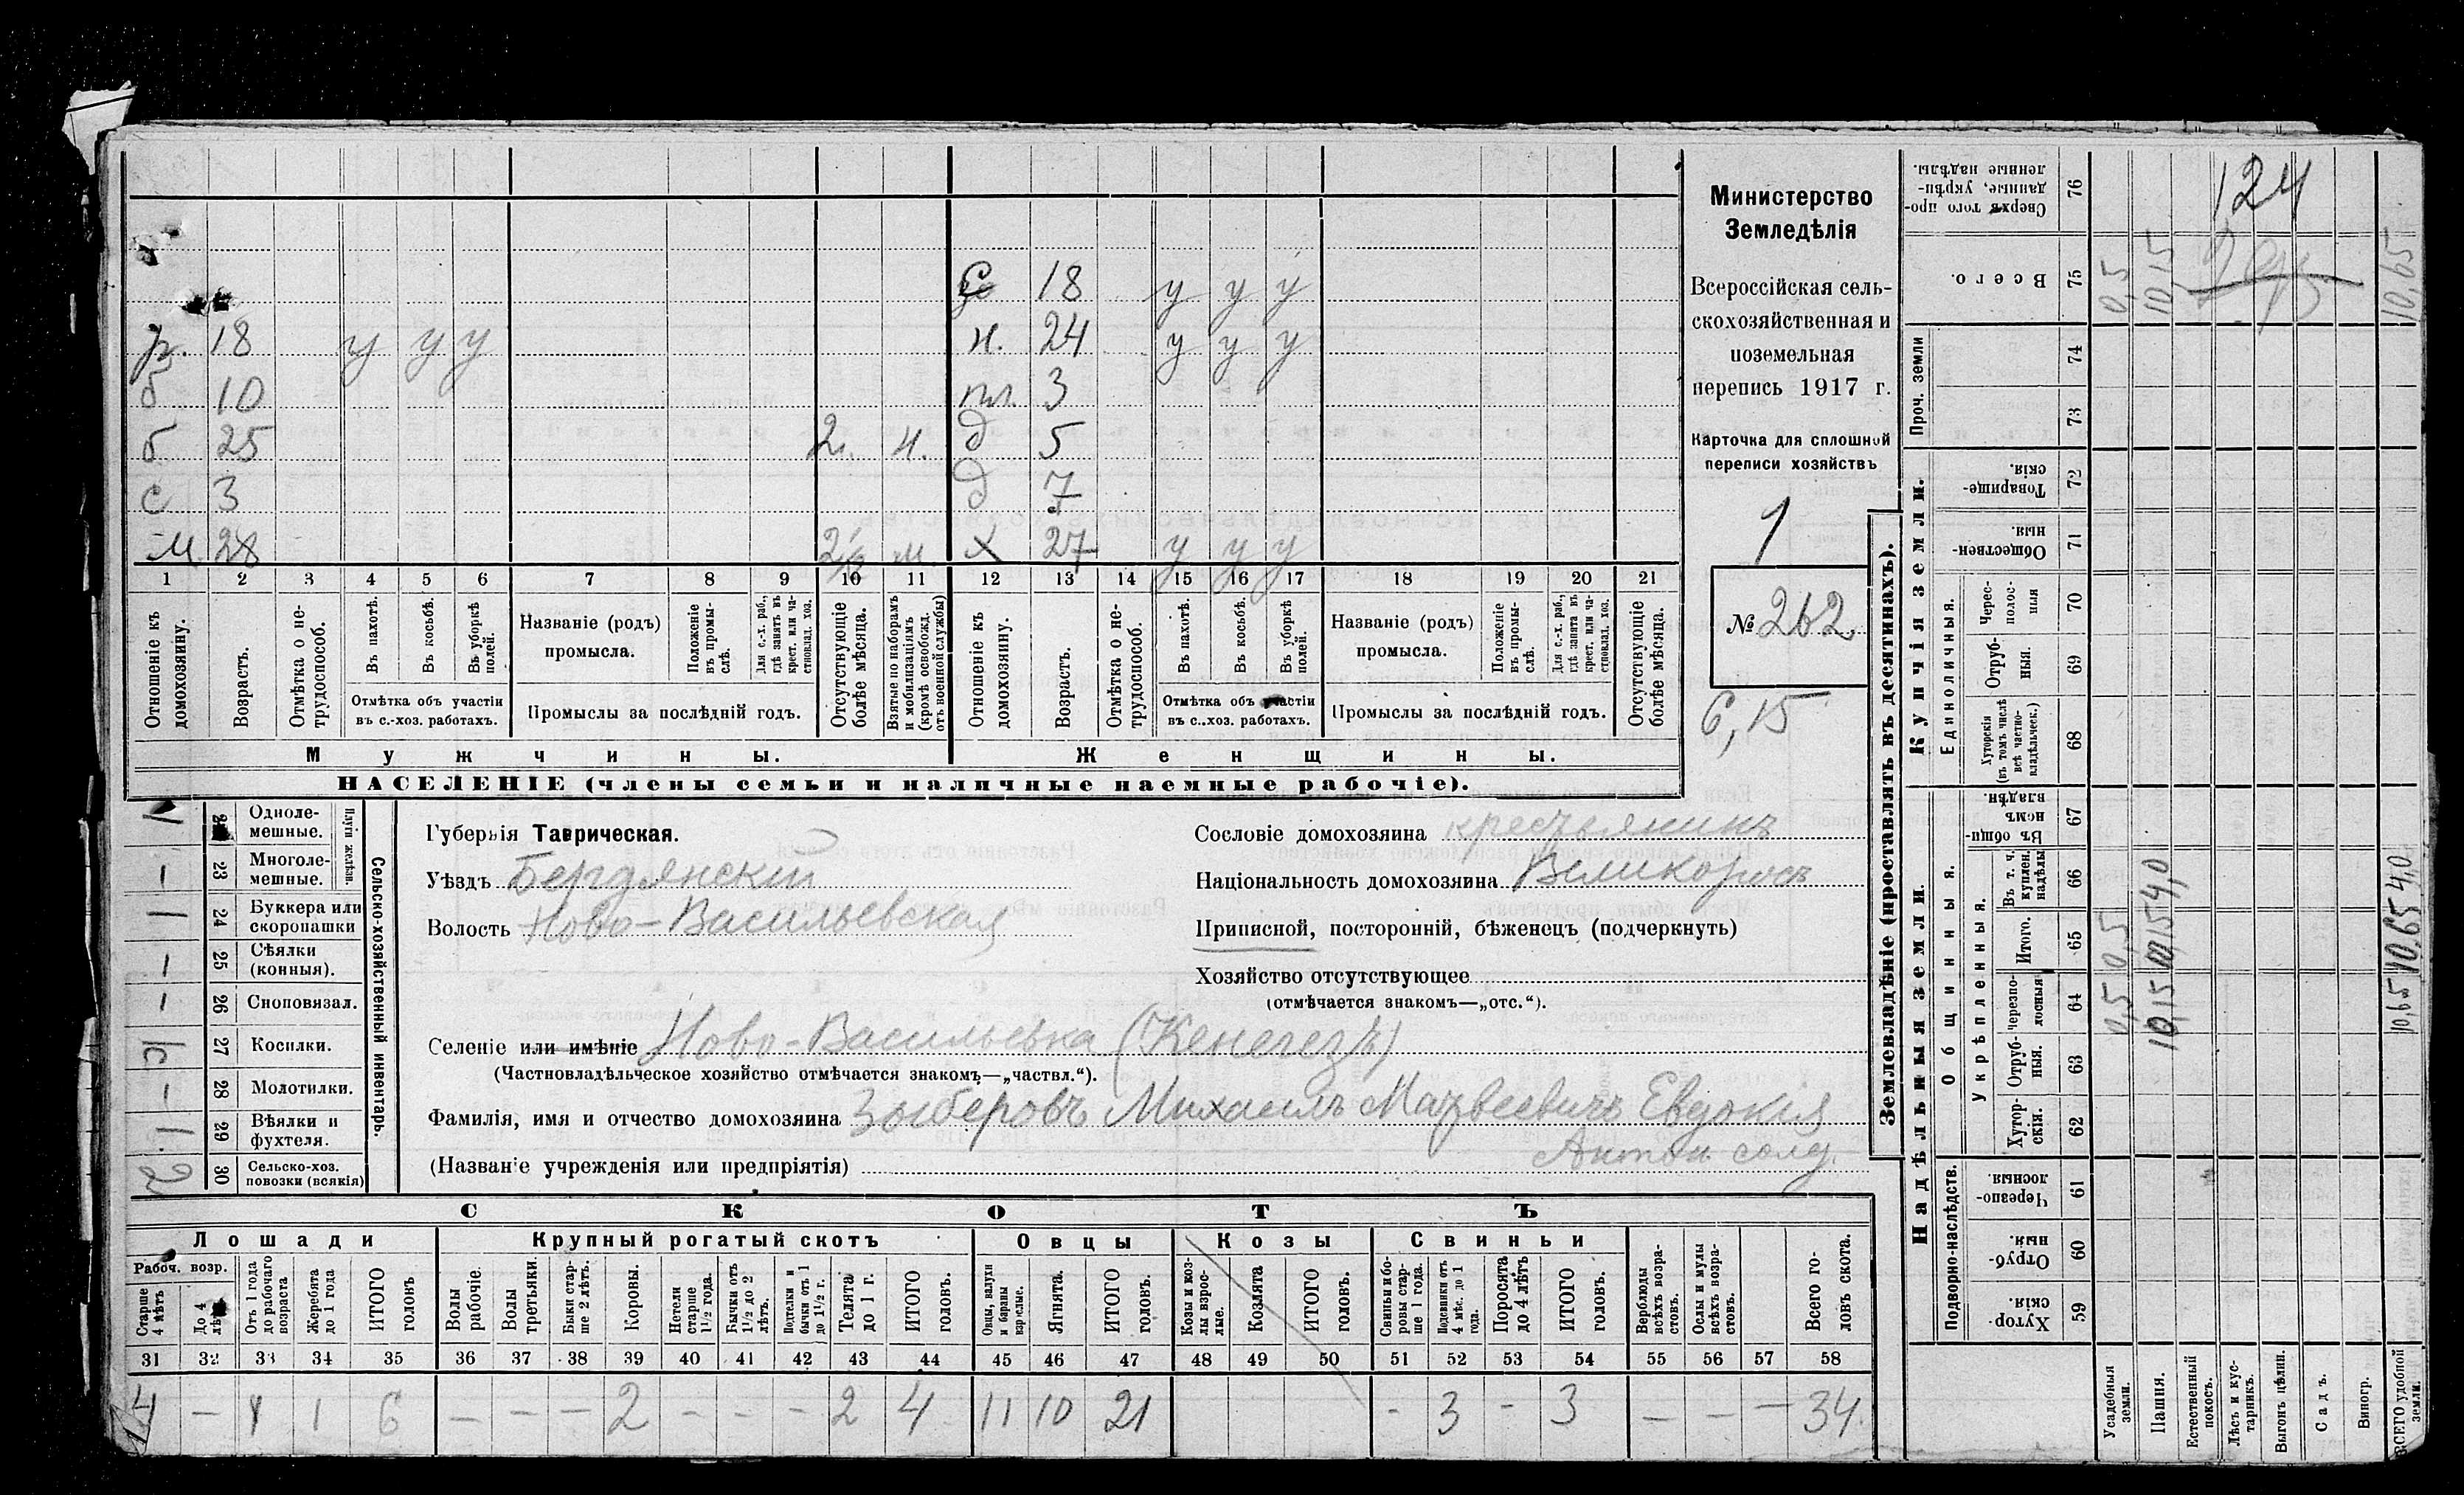 Министерство
Земледѣлія
Всероссійская сель-
скохозяйственная и
поземельная
перепись 1917 г.
Карточка для сплошной
переписи хозяйствъ
1
№ 262
6,15
с 18 у у у
р. 18 у у у н. 24 у у у
б 10 пл. 3
б 25 2. ч. д 5
с 3 д 7
м 28 2½ м. х 27 у у у
1 2 3 4 5 6 7 8 9 10 11 12 13 14 15 16 17 18 19 20 21
Отношеніе къ домохозяину.
Возрастъ.
Отмѣтка о не-трудоспособ.
Въ пахотѣ.
Въ косьбѣ.
Въ уборкѣ полей.
Отмѣтка объ участіи
въ с.-хоз. работахъ.
Названіе (родъ)
промысла.
Положеніе въ промы-слѣ.
Для с.-х. раб., гдѣ занятъ въ крест. или ча-стновлад. хоз.
Промыслы за послѣдній годъ.
Отсутствующіе болѣе мѣсяца.
Взятые по наборамъ и мобилизаціямъ (кромѣ освобожд. отъ военной службы)
Отношеніе къ домохозяину.
Возрастъ.
Отмѣтка о не-трудоспособ.
Въ пахотѣ.
Въ косьбѣ.
Въ уборкѣ полей.
Отмѣтка объ участіи
въ с.-хоз. работахъ.
Названіе (родъ)
промысла.
Положеніе въ промы-слѣ.
Для с.-х. раб., гдѣ занята въ крест. или ча-стновлад. хоз.
Промыслы за послѣдній годъ.
Отсутствующіе болѣе мѣсяца.
Мужчины.
Женщины.
НАСЕЛЕНІЕ (члены семьи и наличные наемные рабочіе).
Сельско-хозяйственный инвентарь.
Плуги желѣзн.
Одноле-мешные. 1
23 Многоле-мешные. –
24 Буккера или скоропашки 1
25 Сѣялки (конныя). –
26 Сноповязал. –
27 Косилки. 1с
28 Молотилки. –
29 Вѣялки и фухтеля. 1.
30 Сельско-хоз. повозки (всякія) 2
Губернія Таврическая.
Уѣздъ Бердянскій
Волость Ново-Васильевская
Сословіе домохозяина крестьянинъ
Національность домохозяина Великороссъ
Приписной, посторонній, бѣженецъ (подчеркнуть)
Хозяйство отсутствующее
(отмѣчается знакомъ—„отс.“).
Селеніе или имѣніе Ново-Васильевка (Кенегезъ)
(Частновладѣльческое хозяйство отмѣчается знакомъ—„частвл.“).
Фамилія, имя и отчество домохозяина Зыберовъ Михаилъ Матвеевичъ Евдокія
(Названіе учрежденія или предпріятія) Антон солд.
СКОТЪ
Лошади
Крупный рогатый скотъ
Овцы
Козы
Свиньи
Рабоч. возр.
Старше 4 лѣтъ
До 4 лѣтъ
Отъ 1 года до рабочаго возраста
Жеребята до 1 года
ИТОГО головъ
Волы рабочіе.
Волы третьяки.
Быки стар-ше 2 лѣтъ.
Коровы.
Нетели старше 1½ года.
Бычки отъ 1½ до 2 лѣтъ.
Подтелки и бычки отъ 1 до 1½ г.
Телята до 1 г.
ИТОГО головъ.
Овцы, валухи и бараны взрослые.
Ягнята.
ИТОГО головъ.
Козы и коз-лы взрос-лые.
Козлята
ИТОГО головъ.
Свиньи и бо-ровы стар-ше 1 года.
Подсвинки отъ 4 мѣс. до 1 года.
Поросята до 4 лѣтъ
ИТОГО головъ.
Верблюды всѣхъ возра-стовъ.
Ослы и мулы всѣхъ возра-стовъ.
Всего го-ловъ скота.
31 32 33 34 35 36 37 38 39 40 41 42 43 44 45 46 47 48 49 50 51 52 53 54 55 56 57 58
4 – 1 1 6 – – – 2 – – – 2 4 11 10 21 - 3 - 3 – – – 34
Землевладѣніе (проставлять въ десятинахъ).
Купчія земли.
Надѣльныя земли.
Сверхъ того про-данные, укрѣп-ленные надѣлы. 76
Всего. 75
Проч. земли
74
73
Товарище-скія. 72
Обществен-ныя 71
Единоличныя.
Черес-полос-ныя 70
Отруб-ныя. 69
Хуторскія (въ томъ числѣ всѣ частно-владѣльческ.) 68
Въ общи-номъ владѣн. 67
Общинныя.
Укрѣпленныя.
Въ т. ч. куплен. надѣлы 66
Итого. 65
Черезпо-лосныя 64
Отруб-ныя. 63
Хутор-скія. 62
Подворно-наслѣдств.
Черезпо-лосныя 61
Отруб-ныя. 60
Хутор-скія. 59
Усадебныя земли. 0,5 0,5 0,5
Пашня. 10,15 10,15 4,0 10,15
Естественный покосъ.
Лѣсъ и кус-тарникъ.
Выгонъ цѣлин.
Садъ.
Виногр.
ВСЕГО удобной земли. 10,65 10,65 4,0 10,65
124